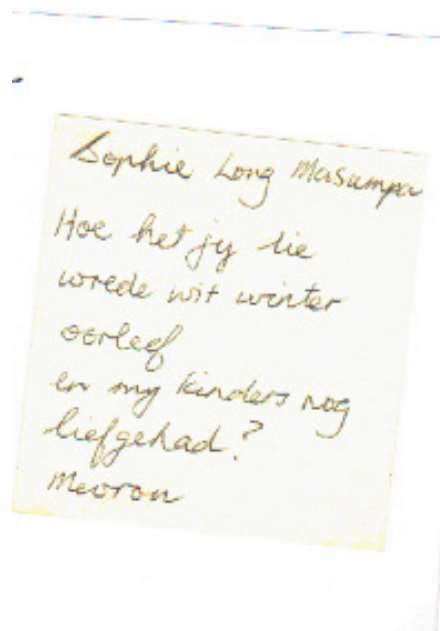 Sophie Long Masumpa
Hoe het jy die
wrede wit winter
oorleef
en my kinders nog
liefgehad?
Mevrou